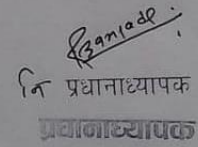 नि प्रधानाध्यापक
प्रधानाध्यापक